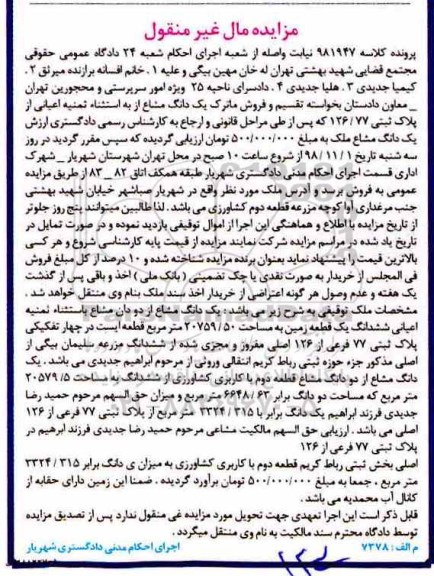 مزایده مال غیر منقول
پرونده کلاسه ۹۸۱۹۴۷ نیابت واصله از شعبه اجرای احکام شعبه ۲۴ دادگاه عمومی حقوقی
مجتمع قضایی شهید بهشتی تهران له خان مهین بیگی و علیه ۱. خانم افسانه برازنده میرثق ۲.
کیمیا جدیدی ۳. هلیا جدیدی ۴. دادسرای ناحیه ۲۵ ویژه امور سرپرستی و محجورین تهران
_ معاون دادستان بخواسته تقسیم و فروش ماترک یک دانگ مشاع از به استثناء ثمنیه اعیانی از
پلاک ثبتی ۷۷ / ۱۲۶ که پس از طی مراحل قانونی و ارجاع به کارشناس رسمی دادگستری ارزش
یک دانگ مشاع ملک به مبلغ ۵۰۰/۰۰۰/۰۰۰ تومان ارزیابی گردیده که سپس مقرر گردید در روز
سه شنبه تاریخ ۱ / ۱۱ / ۹۸ از شروع ساعت ۱۰ صبح در محل تهران شهرستان شهریار _ شهرک
اداری قسمت اجرای احکام مدنی دادگستری شهریار طبقه همکف اتاق ۸۲ _ ۸۳ از طریق مزایده
عمومی به فروش برسد و آدرس ملک مورد نظر واقع در شهریار صباشهر خیابان شهید بهشتی
جنب مرغداری آوا کوچه مزرعه قطعه دوم کشاورزی می باشد . لذا طالبین میتوانند پنج روز جلوتر
از تاریخ مزایده با اطلاع و هماهنگی این اجرا از اموال توقیفی بازدید نموده و در صورت تمایل در
تاریخ یاد شده در مراسم مزایده شرکت نمایند مزایده از قیمت پایه کارشناسی شروع و هر کسی
بالاترین قیمت را پیشنهاد نماید بعنوان برنده مزایده شناخته شده و ۱۰ درصد از کل مبلغ فروش
فی المجلس از خریدار به صورت نقدی یا چک تضمینی ( بانک ملی ) اخذ و باقی پس از گذشت
یک هفته و عدم وصول هر گونه اعتراضی از خریدار اخذ سند ملک بنام وی منتقل خواهد شد .
مشخصات ملک توقیفی به شرح زیر می باشد : یک دانگ مشاع از دو دانگ مشاع باستثناء ثمنیه
اعیانی ششدانگ یک قطعه زمین به مساحت ۵۰ / ۲۰۷۵۹ متر مربع قطعه بیست در چهار تفکیکی
پلاک ثبتی ۷۷ فرعی از ۱۲۶ اصلی مفروز و مجزی شده از ششدانگ مزرعه سلیمان بیگی از
اصلی مذکور جزء حوزه ثبتی رباط کریم انتقالی وروثی از مرحوم ابراهیم جدیدی می باشد . یک
دانگ مشاع از دو دانگ مشاع قطعه دوم با کاربری کشاورزی از ششدانگ به مساحت ۵ / ۲۰۵۷۹
متر مربع که مساحت دو دانگ برابر ۶۳ / ۶۶۴۸ متر مربع و میزان حق السهم مرحوم حمید رضا
جدیدی فرزند ابراهیم یک دانگ برابر با ۳۱۵ / ۳۳۲۴ متر مربع از پلاک ثبتی ۷۷ فرعی از ۱۲۶
اصلی می باشد . ارزیابی حق السهم مالکیت مشاعی مرحوم حمید رضا جدیدی فرزند ابرهیم در
پلاک ثبتی ۷۷ فرعی از ۱۲۶
اصلی بخش ثبتی رباط کریم قطعه دوم با کاربری کشاورزی به میزان ی دانگ برابر ۳۱۵ / ۳۳۲۴
متر مربع ، جمعا به مبلغ ۵۰۰/۰۰۰/۰۰۰ تومان برآورد گردیده . ضمنا این زمین دارای حقابه از
کانال آب محمدیه می باشد .
قابل ذکر است این اجرا تعهدی جهت تحویل مورد مزایده غی منقول ندارد پس از تصدیق مزایده
توسط دادگاه محترم سند مالکیت به نام وی منتقل میگردد .
م الف : ۷۳۷۸ اجرای احکام مدنی دادگستری شهریار